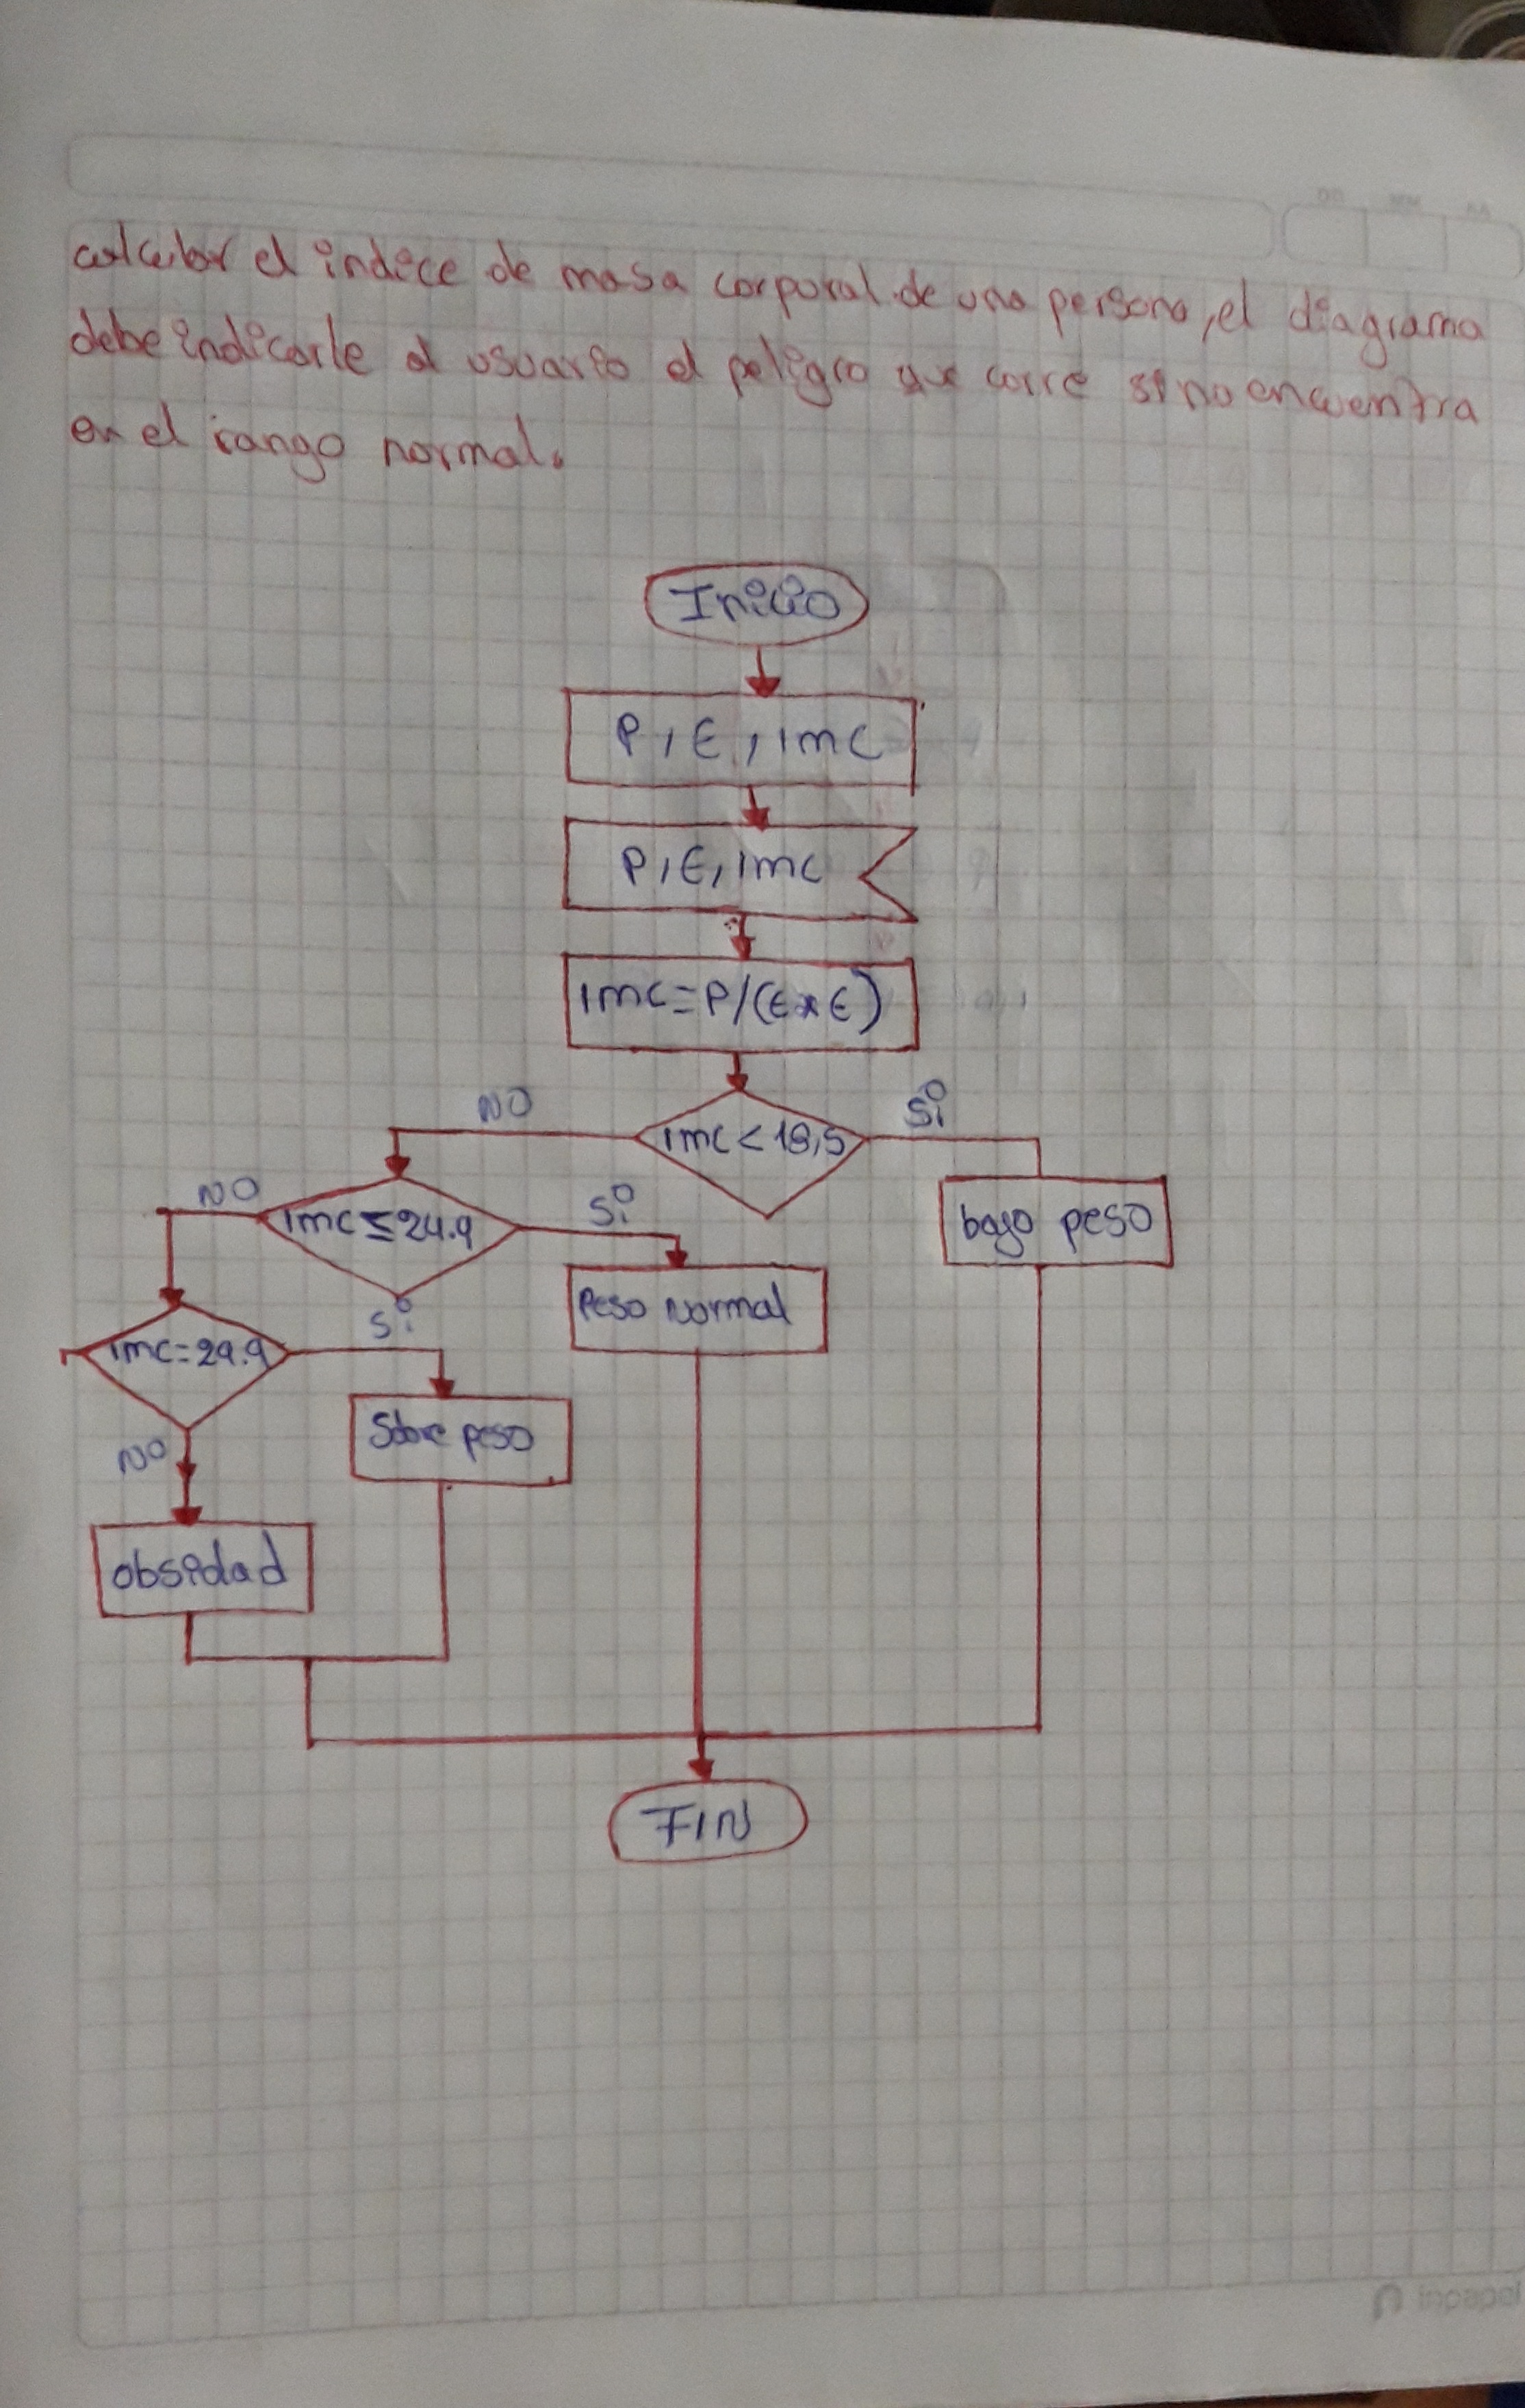 calcular el indice de masa corporal de una persona, el diagrama
debe indicarle al usuario el peligro que corre si no encuentra
en el rango normal.
Inicio
P, E, IMC
P, E, IMC
IMC=P/(E*E)
NO
IMC<18,5
Si
NO
IMC≤24.9
Si
bajo peso
Peso Normal
IMC=29.9
Si
Sobre peso
NO
obsidad
FIN
inpapel